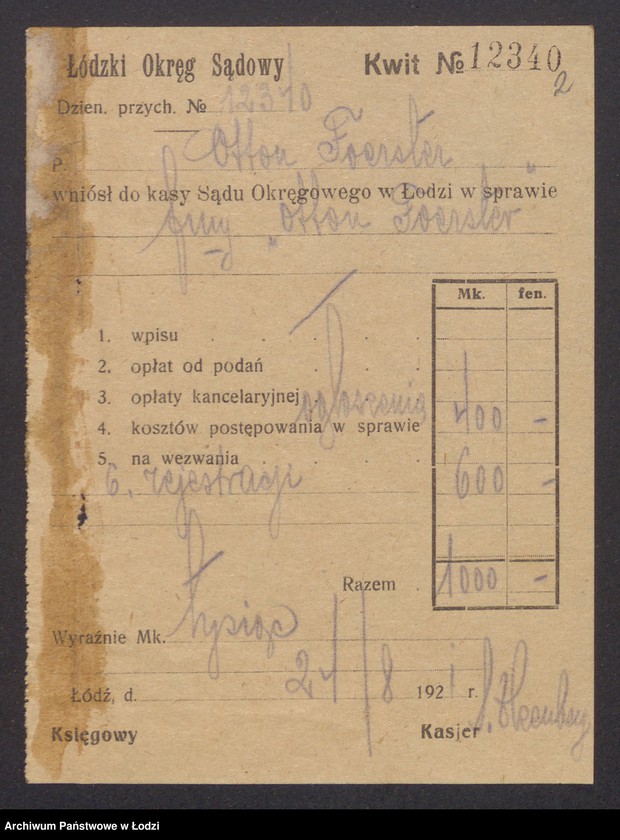 Łódzki Okręg Sądowy Kwit № 12340
2
Dzien. przych. № 12340
P. Otton Foerster
wniósł do kasy Sądu Okręgowego w Łodzi w sprawie
firmy „Otton Foerster"
Mk. fen.
1. wpisu
2. opłat od podań
3. opłaty kancelaryjnej
ogłoszenia 400 -
4. kosztów postępowania w sprawie
5. na wezwania
6. rejestracji 600 -
Razem 1000 -
Wyraźnie Mk. tysiąc
Łódź, d. 24/8 1921 r.
Księgowy Kasjer
Archiwum Państwowe w Łodzi